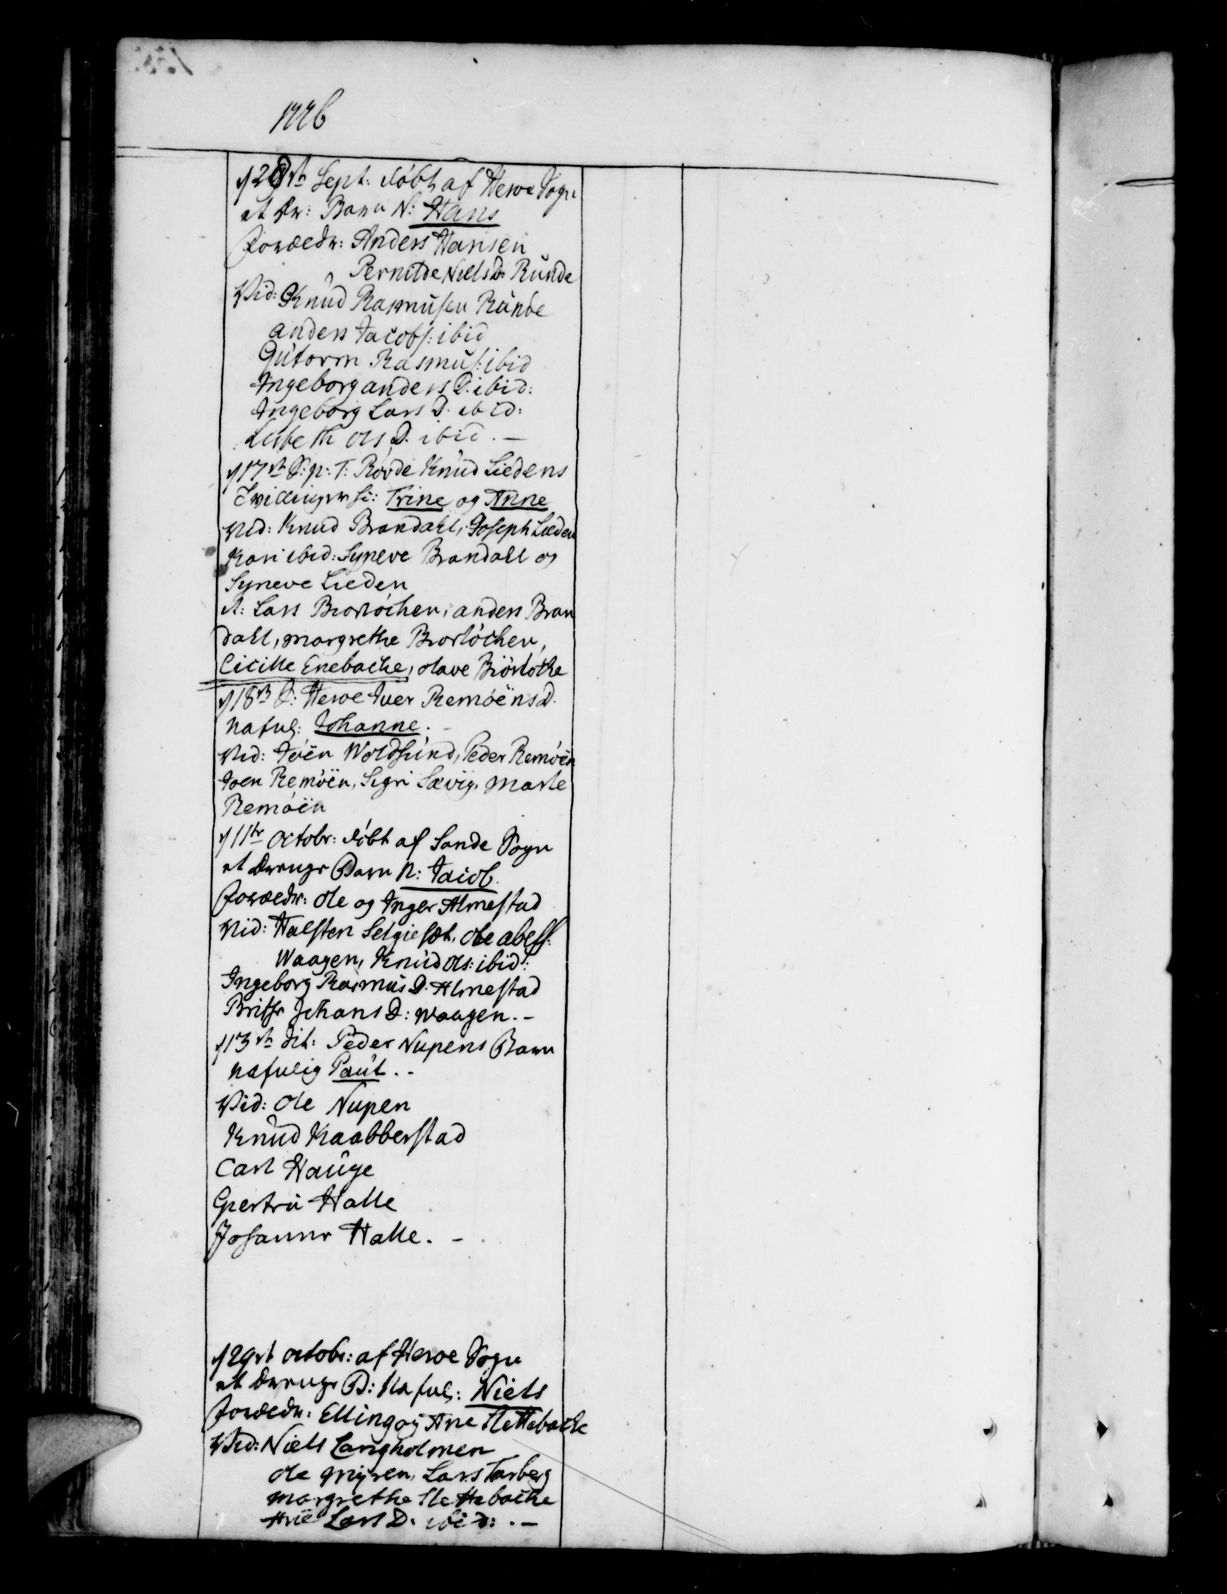 1776
d 28de Sept: döbt af Heroe Sogn
et dr: Barn N: Hans
Forældr: Anders Hansen
Pernilde Niels D: Runde
Vid: Knud Rasmusen Runde
Anders Jacobs: ibid
Gutorm Rasmus: ibid
Ingeborg Anders D: ibid:
Ingeborg Lars D. ibid:
Lisbeth Ols D. ibid. –
RöVde Knud Liedens
Tvillinger Trine og Anne
Vid: Knud Brandahl, Joseph Lieden
Kari ibid: Syneve Brandall og
Syneve Lieden
A: Lars Biorlöchen, Anders Bran
dahl, Margrethe Biorlöchen,
Cicille Enebacke, Olave Biörlöcke
d 18de Heroe Iver Remöens D.
nafnl: Johanne. –
Vid: Jöen Woldsund, Peder Remöen
Joen Remöen, Sigri Sævig, Marte
Remöen
d 11te Octobr: döbt af Sande Sogn
et drenge Barn N: Jacob.
Forældr: Ole og Inger Almestad
Vid: Halsten Selgiesæt, Ole Abels:
Waagen, Knud Ols: ibid:
Ingeborg Rasmus D: Almestad
Brithe Johans D: Waagen. –
d 13de dit: Peder Nupens Barn
nafnlig Paul. –
Vid: Ole Nupen
Knud Kaabberstad
Carl Hauge
Giertru Halle
Johanne Halle. –
d 29de Octobr: af Heroe Sogn
et drenge B: Nafnl: Niels
Forældr: Elling og Ane Flettebacke
Vid: Niels Langholmen
Ole Myren, Lars Tarberg
Margrethe Flettebacke
Lars D. ibid: . –